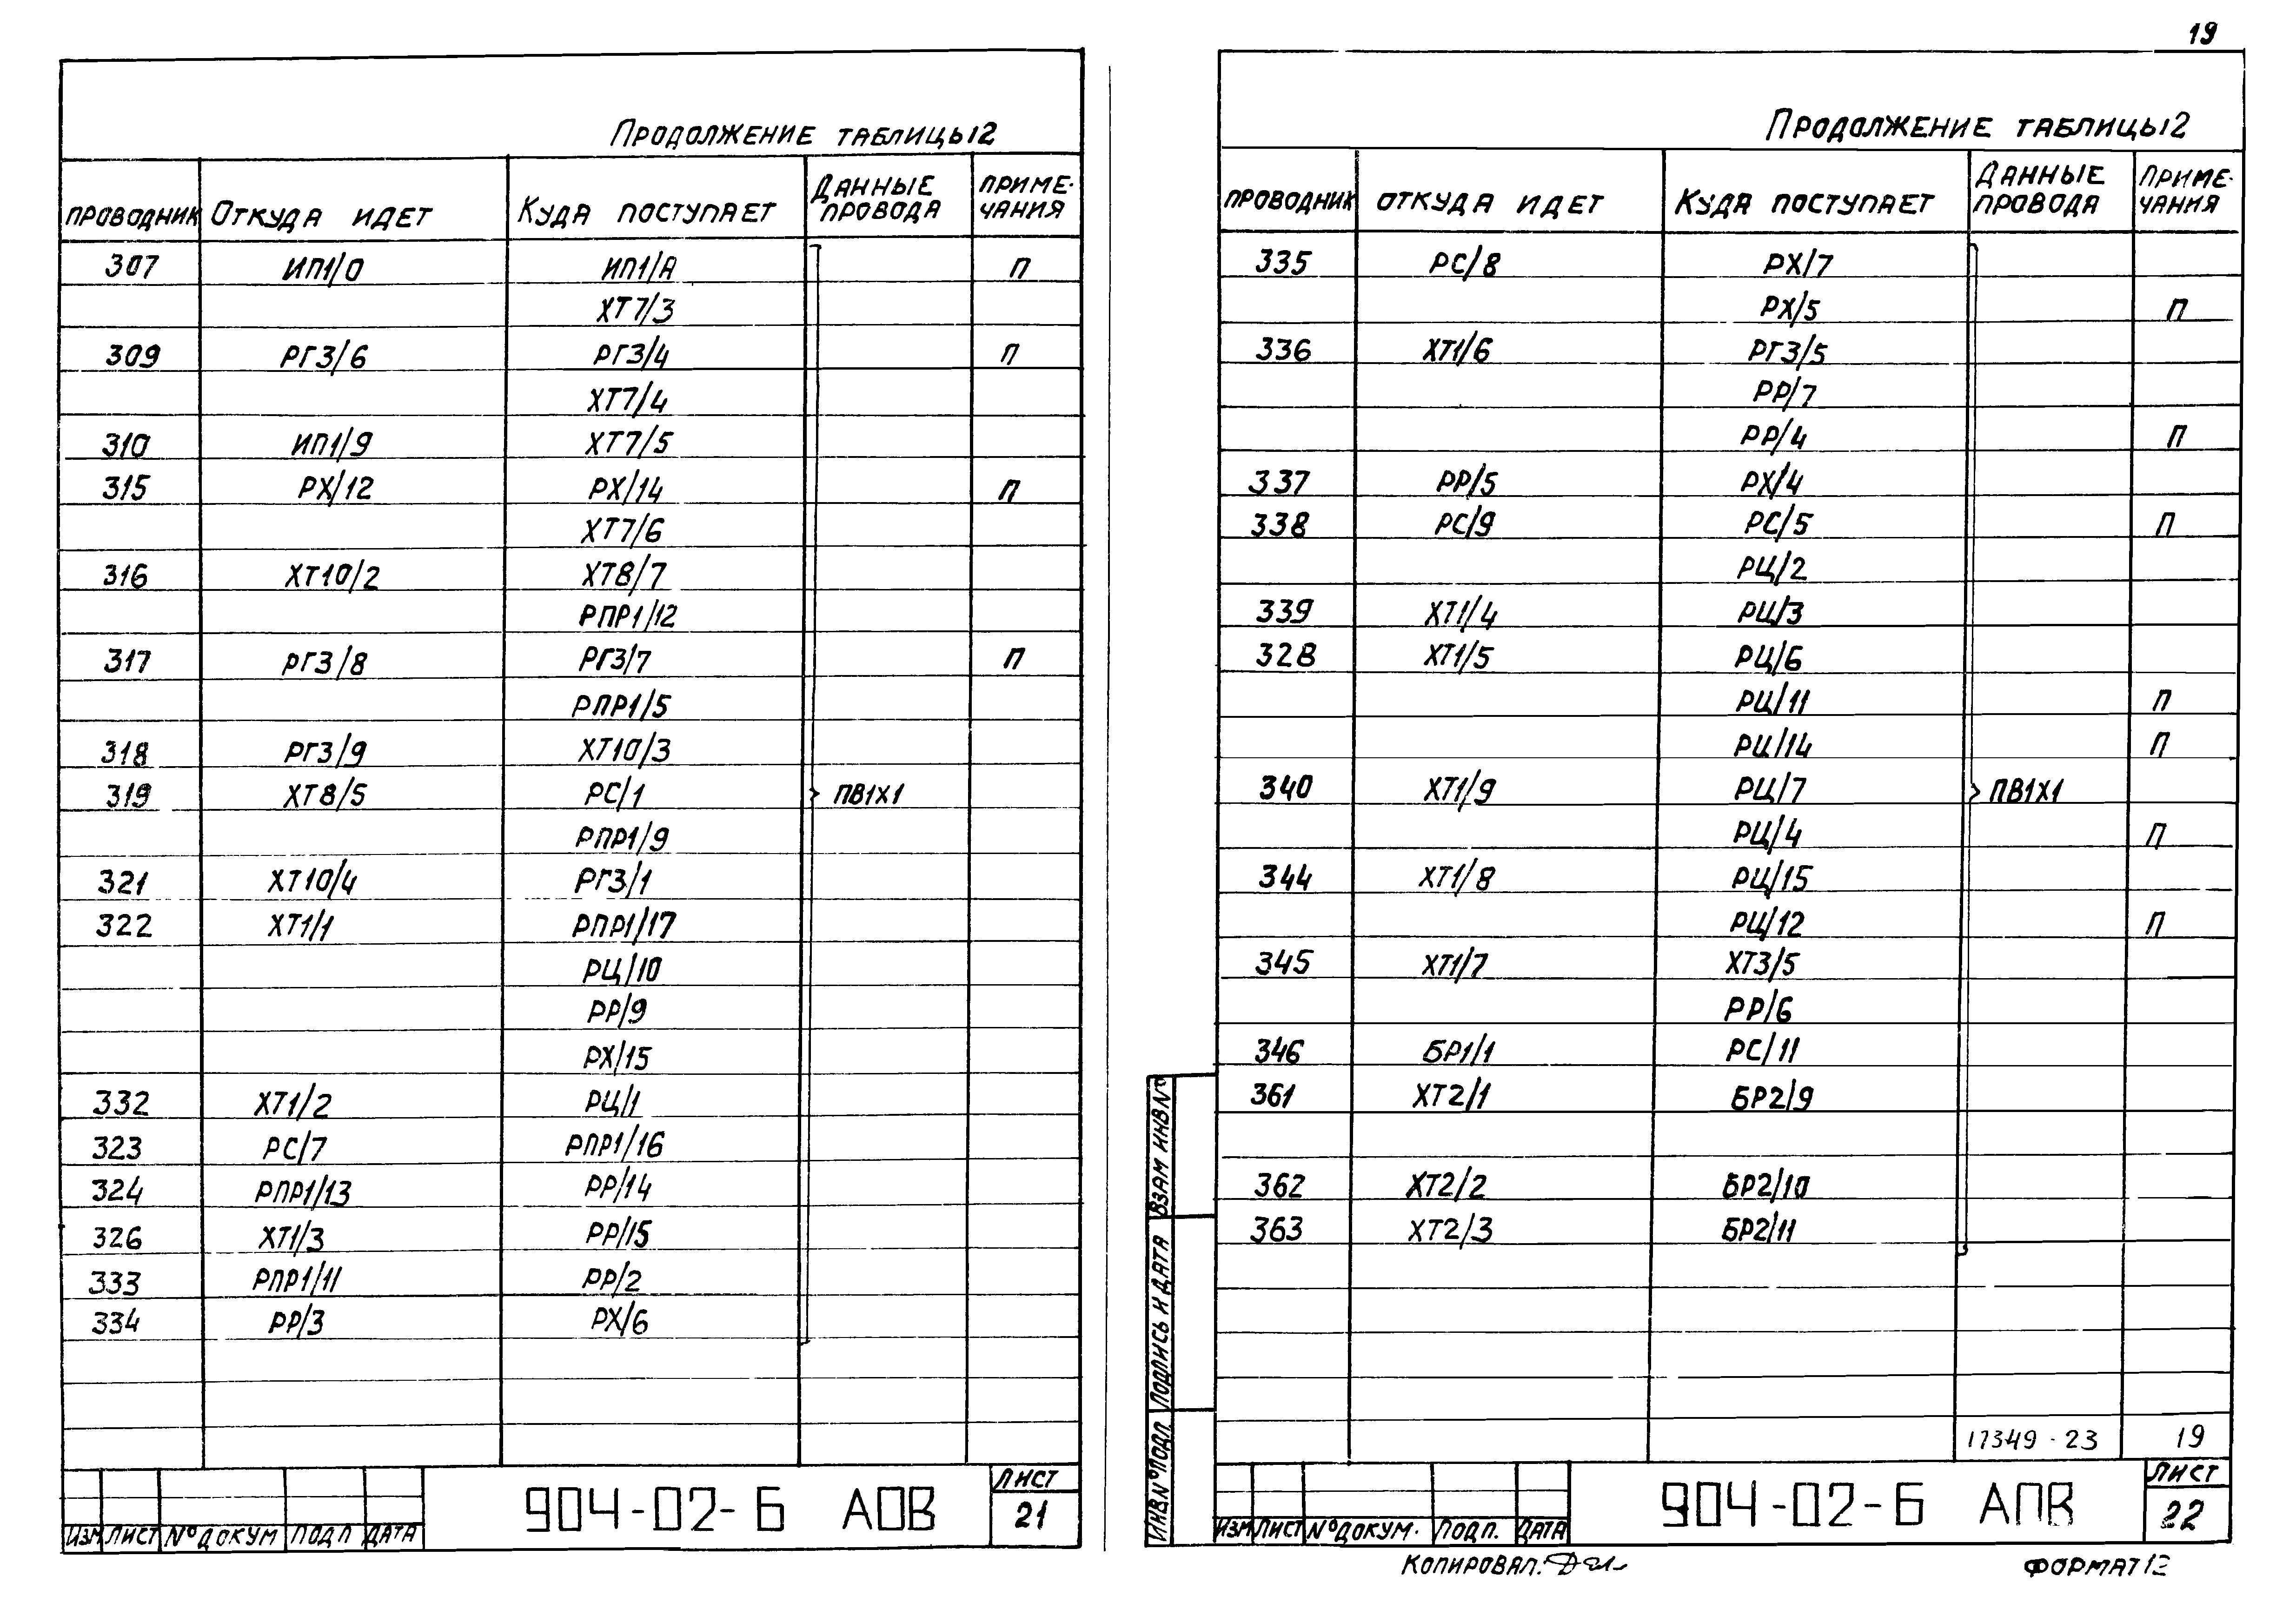 19
Продолжение таблицы 12
проводник Откуда идет Куда поступает Данные провода Примечания
307 ИП1/0 ИП1/А П
ХТ7/3
309 РГ3/6 РГ3/4 П
ХТ7/4
310 ИП1/9 ХТ7/5
315 РХ/12 РХ/14 П
ХТ7/6
316 ХТ10/2 ХТ8/7
РПР1/12
317 РГ3/8 РГ3/7 П
РПР1/5
318 РГ3/9 ХТ10/3
319 ХТ8/5 РС/1 ПВ1Х1
РПР1/9
321 ХТ10/4 РГ3/1
322 ХТ1/1 РПР1/17
РЦ/10
РР/9
РХ/15
332 ХТ1/2 РЦ/1
323 РС/7 РПР1/16
324 РПР1/13 РР/14
326 ХТ1/3 РР/15
333 РПР1/11 РР/2
334 РР/3 РХ/6
904-02-6 АОВ
Лист
21
Изм Лист № докум Подп Дата
Продолжение таблицы 12
проводник откуда идет Куда поступает Данные провода Примечания
335 РС/8 РХ/7
РХ/5 П
336 ХТ1/6 РГ3/5
РР/7
РР/4 П
337 РР/5 РХ/4
338 РС/9 РС/5 П
РЦ/2
339 ХТ1/4 РЦ/3
328 ХТ1/5 РЦ/6
РЦ/11 П
РЦ/14 П
340 ХТ1/9 РЦ/7 ПВ1Х1
РЦ/4 П
344 ХТ1/8 РЦ/15
РЦ/12 П
345 ХТ1/7 ХТ3/5
РР/6
346 БР1/1 РС/11
361 ХТ2/1 БР2/9
362 ХТ2/2 БР2/10
363 ХТ2/3 БР2/11
17349-23 19
904-02-6 АПВ
Лист
22
Изм Лист № докум. Подп. Дата
Взам инв №
Подпись и дата
Инв № подл
Копировал:
Формат 12